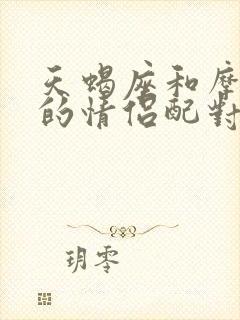 天蝎座和摩
的情侣配對
玥零